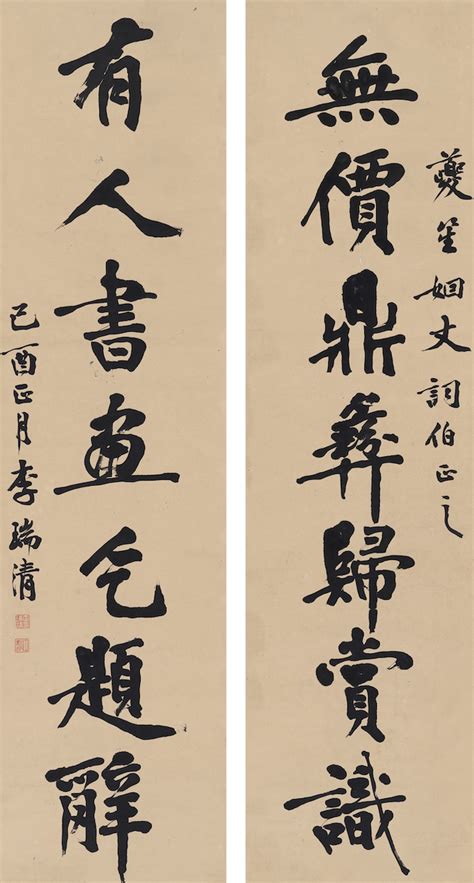 夔笙姻丈詞伯正之
無價鼎彝歸賞識
有人書畫乞題辭
己酉正月李瑞清